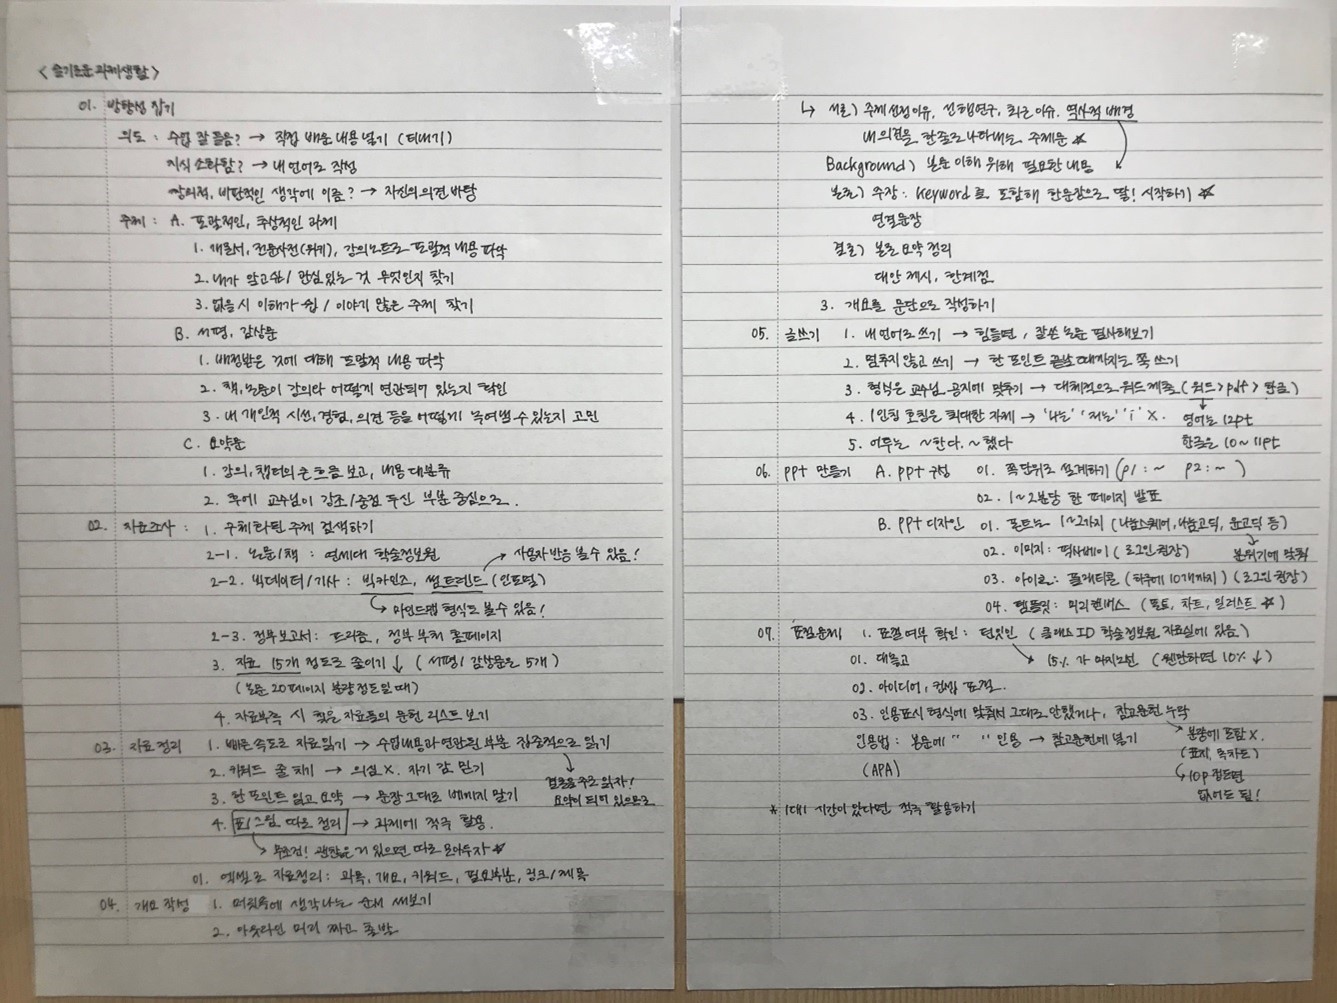 <슬기로운 과제생활>
01. 방향성 잡기
의도 : 수업 잘 들음? → 직접 배운 내용 넣기 (티내기)
지식 소화함? → 내 언어로 작성
창의적, 비판적인 생각에 이름? → 자신의 의견 바탕
주제 : A. 포괄적인, 추상적인 과제
1. 개론서, 전문사전(위키), 강의노트로 포괄적 내용 파악
2. 내가 알고싶/ 관심 있는 것 무엇인지 찾기
3. 없을 시 이해가 쉽 / 이야기 많은 주제 찾기
B. 서평, 감상문
1. 배정받은 것에 대해 포괄적 내용 파악
2. 책, 논문이 강의와 어떻게 연관되어 있는지 확인
3. 내 개인적 시선, 경험, 의견 등을 어떻게 녹여낼 수 있는지 고민
C. 요약문
1. 강의, 챕터의 큰 흐름 보고, 내용 대분류
2. 후에 교수님이 강조/중점 두신 부분 중심으로.
02. 자료조사 : 1. 구체화된 주제 검색하기
2-1. 논문/책 : 연세대 학술정보원
사용자 반응 볼 수 있음!
2-2. 빅데이터/기사 : 빅카인즈, 썸트렌드 (인포털)
마인드맵 형식도 볼 수 있음!
2-3. 정부보고서 : 프리즘, 정부 부처 홈페이지
3. 자료 15개 정도로 줄이기 ↓ ( 서평/ 감상문은 5개 )
(논문 20페이지 분량 정도일 때)
4. 자료부족 시 찾은 자료들의 문헌 리스트 보기
03. 자료 정리 1. 빠른 속도로 자료읽기 → 수업내용과 연관된 부분 집중적으로 읽기
2. 키워드 줄 치기 → 의심 X. 자기 감 믿기
결론을 주로 읽자!
요약이 되어 있으므로
3. 한 포인트 읽고 요약 → 문장 그대로 베끼지 말기
4. 표/그림 따로 정리 → 과제에 적극 활용.
무조건! 괜찮은 거 있으면 따로 모아두자 ☆
01. 엑셀로 자료정리 : 과목, 개요, 키워드, 필요부분, 링크/제목
04. 개요 작성 1. 머릿속에 생각나는 순서 써보기
2. 아웃라인 미리 짜고 출발
↳ 서론) 주제선정이유, 선행연구, 최근이슈, 역사적 배경
내 의견을 한줄로 나타내는 주제문 ☆
Background) 본문 이해 위해 필요한 내용
본론) 주장 : keyword로 포함해 한문장으로 딸! 시작하기 ☆
연결문장
결론) 본론 요약 정리
대안 제시, 한계점
3. 개요를 문단으로 작성하기
05. 글쓰기 1. 내 언어로 쓰기 → 힘들면, 잘쓴 논문 필사해보기
2. 멈추지않고 쓰기 → 한 포인트 끝날 때까지는 쭉 쓰기
3. 형식은 교수님 공지에 맞추기 → 대체적으로 워드 제출 ( 워드 > pdf > 한글 )
4. 1인칭 호칭은 최대한 자제 → '나는' '저는' 'i' X.
영어는 12pt
한글은 10~11pt
5. 어투는 ~한다. ~했다
06. ppt 만들기 A. ppt 구성 01. 쪽단위로 설계하기 (p1 : ~ p2 : ~ )
02. 1~2분당 한 페이지 발표
B. ppt 디자인 01. 폰트는 1~2가지 (나눔스퀘어, 나눔고딕, 윤고딕 등)
분위기에 맞춰
02. 이미지 : 픽사베이 ( 로그인 권장)
03. 아이콘 : 플래티콘 (하루에 10개까지) (로그인 권장)
04. 템플릿 : 미리캔버스 ( 폰트, 차트, 일러스트 ☆ )
07. 표절문제 1. 표절 여부 확인 : 턴잇인 ( 클래스 ID 학술정보원 자료실에 있음)
15%가 마지노선 ( 웬만하면 10% ↓ )
01. 대놓고
02. 아이디어, 컨셉 표절.
03. 인용표시 형식에 맞춰서 그대로 안했거나, 참고문헌 누락
인용법 : 본문에 " " 인용 → 참고문헌에 넣기
(APA)
분량에 포함 X.
(표지, 목차도)
10p 정도면
없어도 됨!
* 1대1 시간이 있다면 적극 활용하기